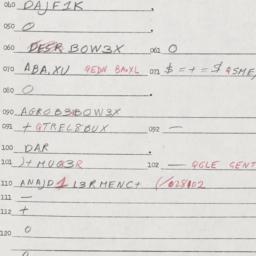 040 DAJF1K
050 O
060 DESR BOW3X 061 O
070 ABA.XU QEDN BAXL 071 $ = + = $ QSME,
080 O
090 AGRO B3BOW3X
091 + QTREC8BUX 092 —
100 DAR
101 )+ MUQ3R 102 — QGLE GENT
110 ANAJD 1 13RMENC+ (/028102
111 —
112 +
O
120